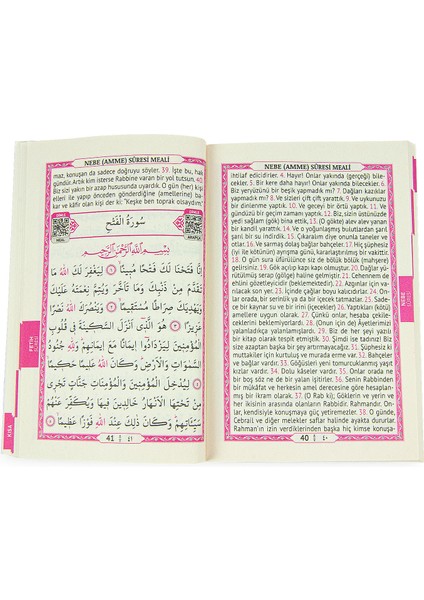 NEBE (AMME) SÛRESİ MEALİ
ihtilaf edicidirler. 4. Hayır! Onlar yakında (gerçeği) bile-
cekler. 5. Bir kere daha hayır! Onlar yakında bilecekler. 6.
Biz yeryüzünü bir beşik yapmadık mı? 7. Dağları kazıklar
yapmadık mı? 8. Ve sizleri çift çift yarattık. 9. Ve uykunuzu
bir dinlenme yaptık. 10. Ve geceyi bir örtü yaptık. 11. Ve
gündüzü bir geçim zamanı yaptık. 12. Biz, sizin üstünüzde
yedi sağlam (göğü) bina ettik. 13. (O gökte) alev alev yanan
bir kandil yarattık. 14. Ve o yoğunlaşmış bulutlardan şarıl
şarıl bir su indirdik. 15. Çıkaralım diye onunla taneler ve
otlar. 16. Ve sarmaş dolaş bağlar bahçeler. 17. Hiç şüphesiz
(iyi ile kötünün) ayrışma günü, kararlaştırılan bir vakittir.
18. O gün sura üfürülünce siz de bölük bölük (mahşere)
gelirsiniz. 19. Gök açılıp kapı kapı olmuştur. 20. Dağlar yü-
rütülmüş serap (gölge) haline gelmiştir. 21. Cehennem de
ehlini gözetleyicidir (beklemektedir). 22. Azgınlar için va-
rılacak son yer. 23. İçinde çağlar boyu kalıcıdırlar. 24. On-
lar orada, bir serinlik ya da bir içecek tatmazlar. 25. Sade-
ce bir kaynar su ve bir irin (içerler). 26. Yaptıkları (kötü-
lüklere) uygun bir ceza. 27. Çünkü onlar, hesaba çekile-
ceklerini beklemiyorlardı. 28. (Onun için de) Âyetlerimizi
yalanladıkça yalanladılar. 29. Biz ise her şeyi yazıp
bir kitap olarak tespit etmiştik. 30. Şimdi ise tadınız! Biz
size azaptan başka bir şey artırmayacağız. 31. Şüphesiz ki
muttakiler için kurtuluş ve murada erme var. 32. Bahçeler
ve bağlar vardır. 33. Göğüsleri yeni tomurcuklanmış yaşıt
kızlar vardır. 34. Dolu kâseler vardır. 35. Onlar orada ne
bir boş söz ne de bir yalan işitirler. 36. Senin Rabbinden
bir mükâfat ki herkesin amel derecesine göre hesaplanmış
bir ikram olarak. 37. (O Rab ki); Göklerin ve yerin ve
her ikisinin arasında olanların Rabbidir. Rahmandır. On-
lar, kendisiyle konuşmaya güç yetiremezler. 38. O günde,
Cebrail ve diğer melekler saflar halinde ayakta dururlar.
Rahman'ın izin verdiklerinden başka hiç kimse konuşa-
40 ٤٠
NEBE SÛRESİ
NEBE (AMME) SÛRESİ MEALİ
maz, konuşan da sadece doğruyu söyler. 39. İşte bu, hak
gündür. Artık kim isterse Rabbine varan bir yol tutsun. 40.
Biz sizi yakın bir azap hususunda uyardık. O gün (her) kişi
elleri ile yapıp önceden gönderdiğine (amellerine) bakar
ve kâfir olan kişi der ki: "Keşke ben toprak olsaydım."
MEAL
سُورَةُ الْفَتْحِ
ARAPÇA
بِسْمِ اللّٰهِ الرَّحْمٰنِ الرَّحِيمِ
اِنَّا فَتَحْنَا لَكَ فَتْحًا مُبِينًاۙ ﴿١﴾ لِيَغْفِرَ لَكَ اللّٰهُ مَا
تَقَدَّمَ مِنْ ذَنْبِكَ وَمَا تَاَخَّرَ وَيُتِمَّ نِعْمَتَهُ عَلَيْكَ
وَيَهْدِيَكَ صِرَاطًا مُسْتَقِيمًاۙ ﴿٢﴾ وَيَنْصُرَكَ اللّٰهُ نَصْرًا
عَزِيزًا ﴿٣﴾ هُوَ الَّذِٓي اَنْزَلَ السَّكِينَةَ فِي قُلُوبِ
الْمُؤْمِنِينَ لِيَزْدَادُٓوا اِيمَانًا مَعَ اِيمَانِهِمْ وَلِلّٰهِ جُنُودُ
السَّمٰوَاتِ وَالْاَرْضِ وَكَانَ اللّٰهُ عَلِيمًا حَكِيمًاۙ
﴿٤﴾ لِيُدْخِلَ الْمُؤْمِنِينَ وَالْمُؤْمِنَاتِ جَنَّاتٍ تَجْرِي
مِنْ تَحْتِهَا الْاَنْهَارُ خَالِدِينَ فِيهَا وَيُكَفِّرَ عَنْهُمْ
سَيِّـَٔاتِهِمْ وَكَانَ ذٰلِكَ عِنْدَ اللّٰهِ فَوْزًا عَظِيمًاۙ ﴿٥﴾
41 ٤١
FETİH SÛRESİ
KISA